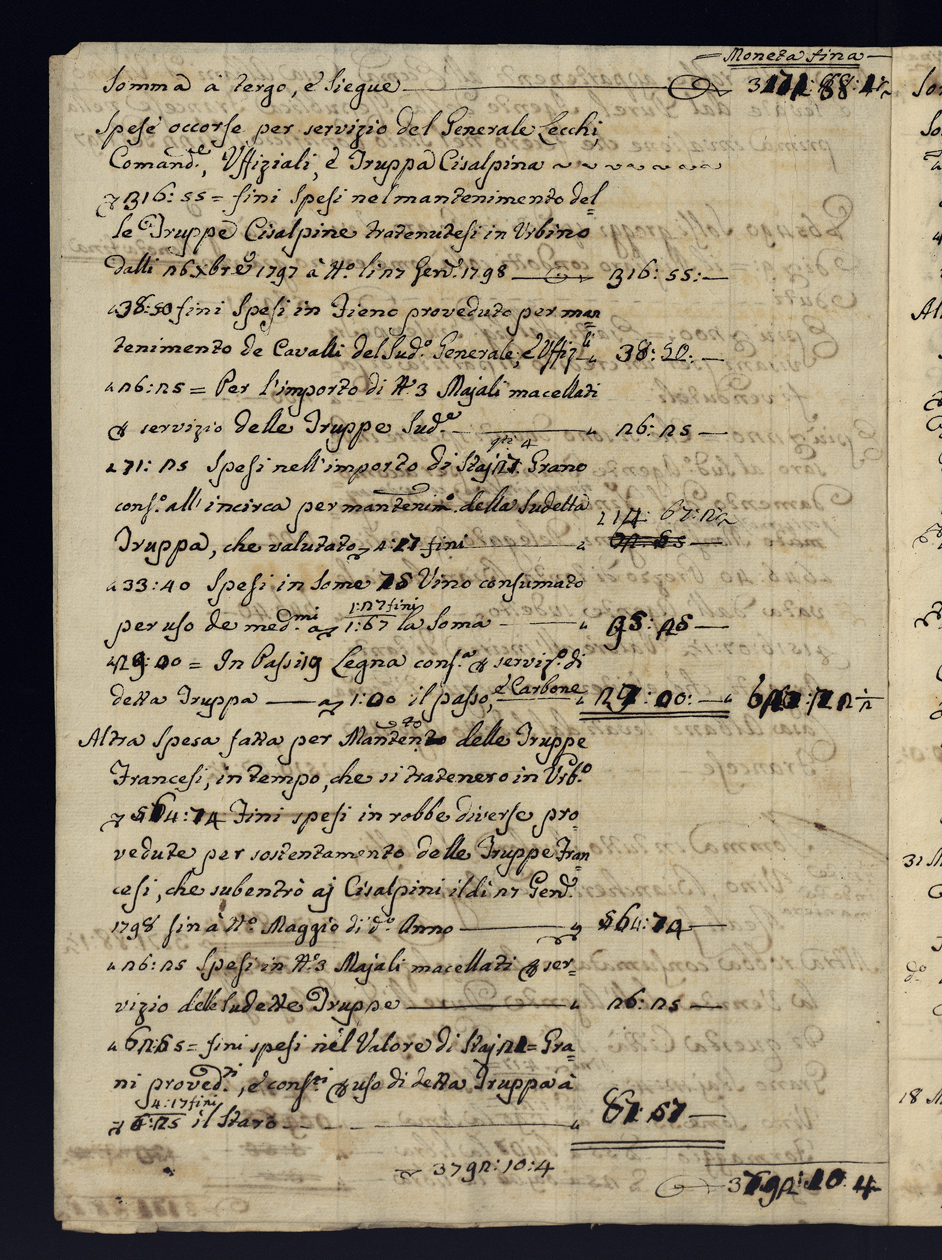 Moneta fina
Somma à tergo, è Siegue
Spese occorse per servizio del Generale Lecchi,
Comand.e, Uffiziali, è Truppa Cisalpina
316:55= fini Spesi nel mantenimento del=
le Truppe Cisalpine tratenutesi in Urbino
dalli 26 Xbre 1797 à tt.o li 27 Gen.o 1798 — 316:55:—
38:50 fini Spesi in Fieno proveduto per man=
tenimento de Cavalli del Sud.o Generale, è Uffiz.li " 38:50:—
" 26:25 = Per l'importo di N.o 3 Majali macellati
servizio delle Truppe Sud.e — " 26:25 —
" 71:25 Spesi nell'importo di Staj Grano
cons.o all'incirca per mantenim.o della Sudetta
Truppa, che valutato 4:17 fini
" 33:40 Spesi in Some Vino consumato
1:27 fini
per uso de med.mi a 1:67 la Soma — "
= In Passi 19 Legna cons.a servis.o di
detta Truppa — a 1:00 il passo, è Carbone
Altra Spesa fatta per Mantento delle Truppe
Francesi, in tempo, che si tratenero in Urb.o
564:74 Fini spesi in robbe diverse pro=
vedute per sostentamento delle Truppe Fran
cesi, che subentrò aj Cisalpini il dì 27 Gen.o
1798 fin à tt.o Maggio di d.o Anno — 564:74 —
" 26:25 Spesi in N.o 3 Majali macellati ser=
vizio delle Sudette Truppe — " 26:25 —
fini spesi nel Valore di Staj = Gra=
ni proved.ti, è cons.ti uso di detta Truppa à
4:17 fini
il Staro — "
3792:10:4
3792:10:4